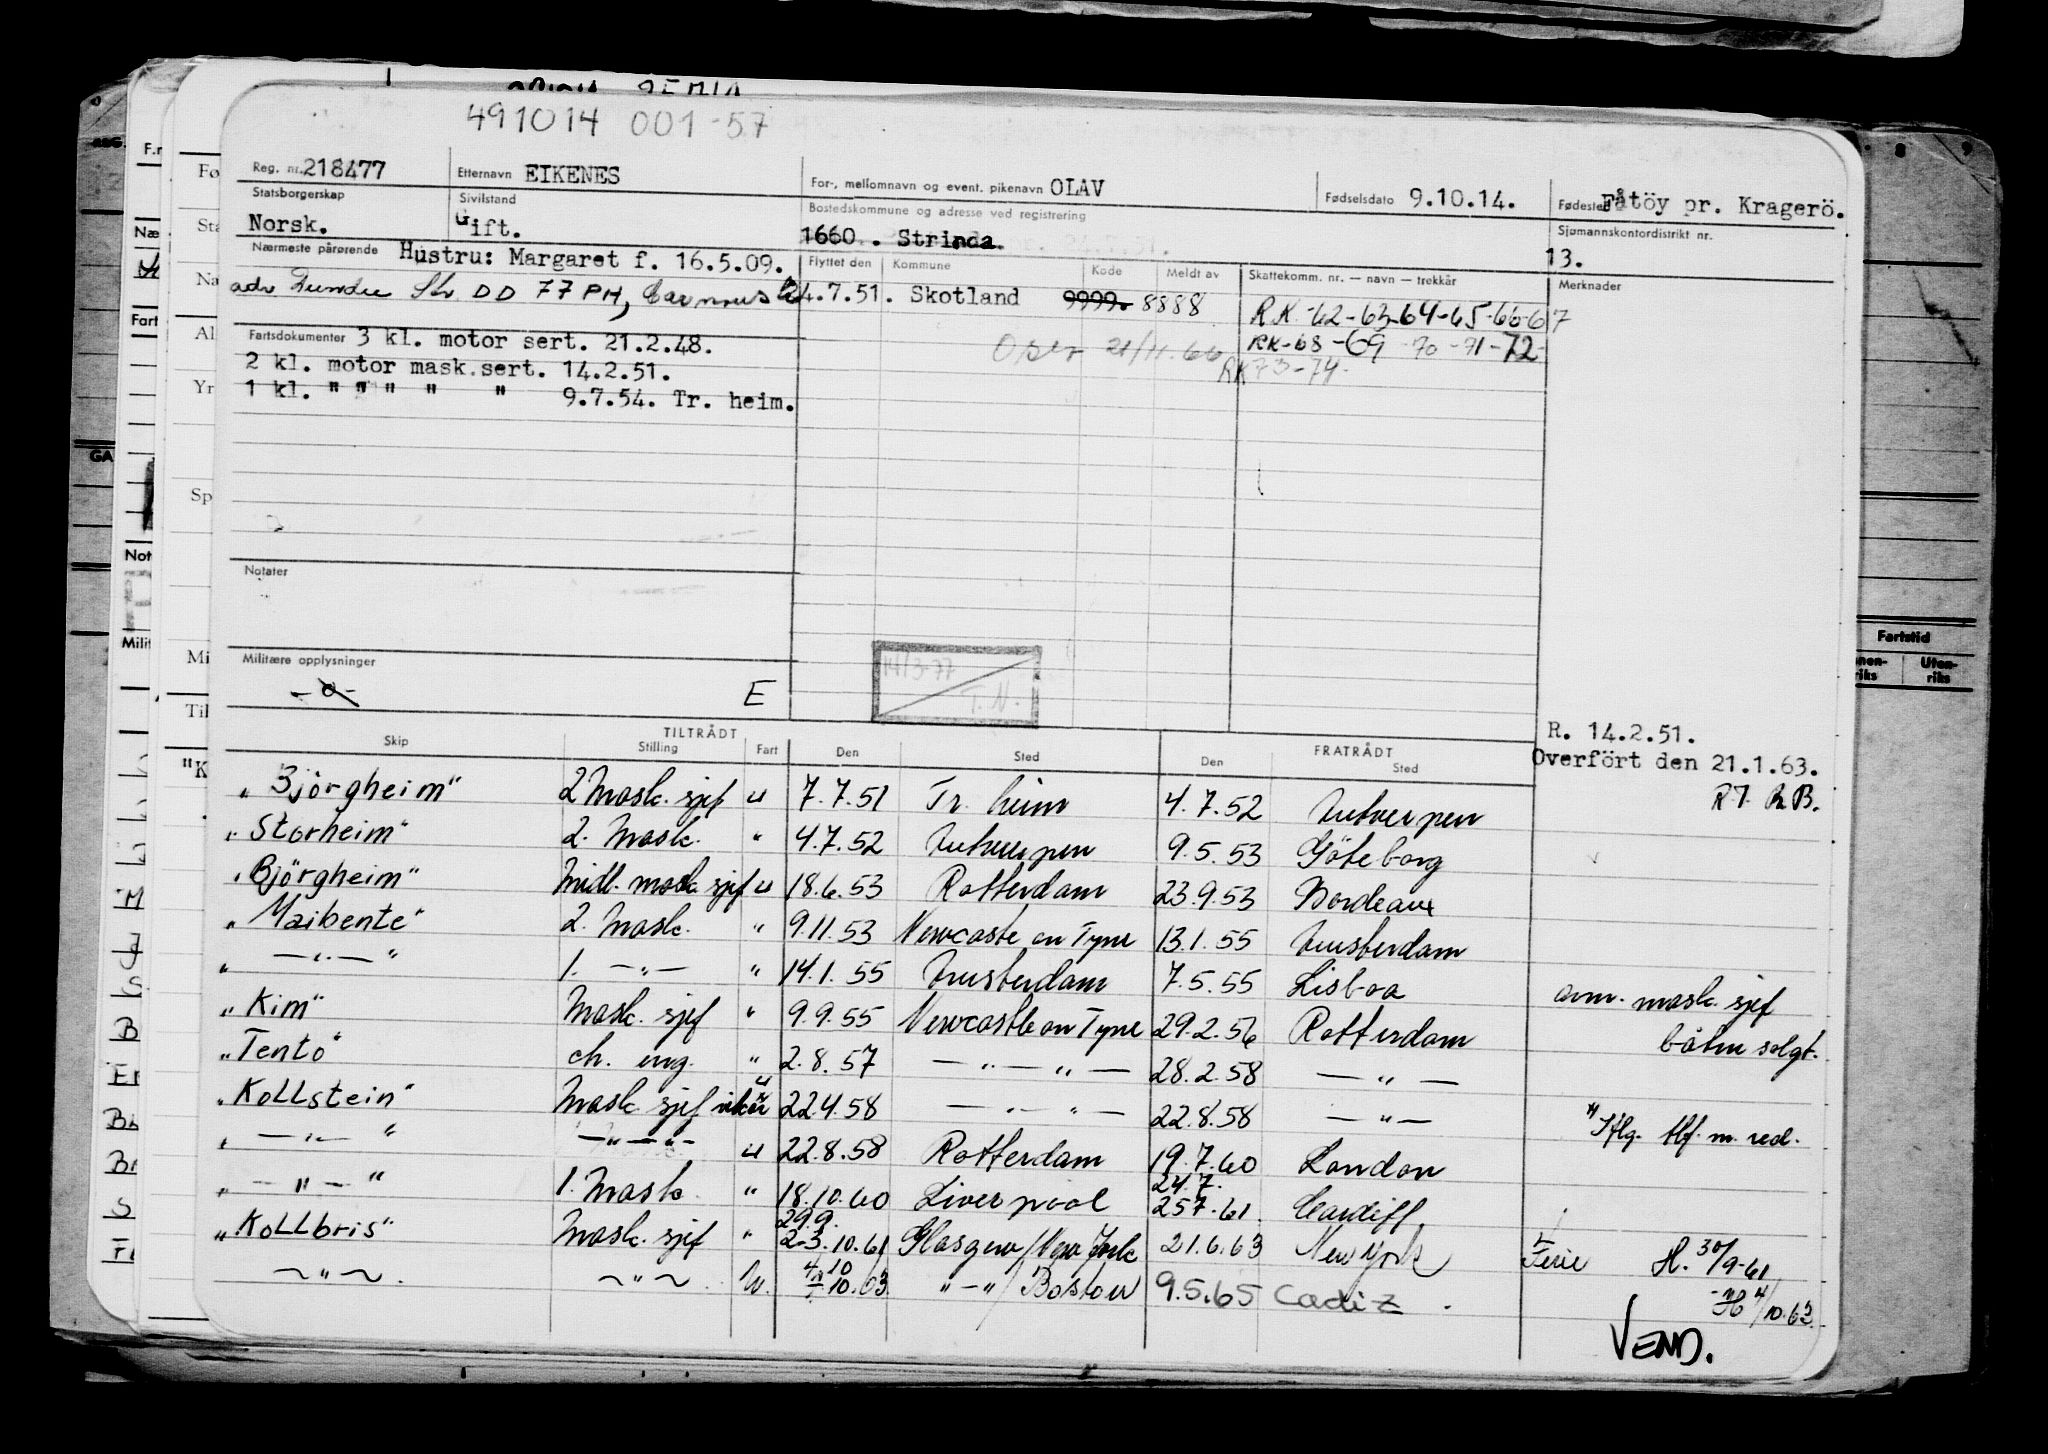 491014 001-57
Reg. nr. 218477 Etternavn EIKENES For-, mellomnavn og event. pikenavn OLAV Fødselsdato 9.10.14. Fødested Fåtöy pr. Kragerö.
Statsborgerskap Norsk. Sivilstand Gift. Bostedskommune og adresse ved registrering 1660. Strinda. Sjømannskontordistrikt nr. 13.
Nærmeste pårørende Hustru: Margaret f. 16.5.09. Flyttet den Kommune Kode Meldt av Skattekomm. nr. — navn — trekkår Merknader
adr Dundee Str DD 77 PH, 24.7.51. Skotland 9999. 8888 RK-62-63-64-65-66-67
Fartsdokumenter 3 kl. motor sert. 21.2.48. 21/11.66 RK-68-69-70-71-72-
2 kl. motor mask.sert. 14.2.51. RK73-74-
1 kl. " " " " " 9.7.54. Tr. heim.
Notater
Militære opplysninger
-o- E
14/3-77 T.N.
R. 14.2.51.
Overfört den 21.1.63.
TILTRÅDT FRATRÅDT
Skip Stilling Fart Den Sted Den Sted
"Björgheim" 2 mask. sjef u 7.7.51 Tr. heim 4.7.52 Antverpen
"Storheim" 2. mask. " 4.7.52 Antverpen 9.5.53 Göteborg
"Björgheim" midl. mask sjef u 18.6.53 Rotterdam 23.9.53 Bordeaux
"Maibente" 2. mask. " 9.11.53 Newcastle on Tyne 13.1.55 Amsterdam
" —"— " 1. —"— " 14.1.55 Amsterdam 7.5.55 Lisboa avm. mask. sjef
"Kim" mask. sjef " 9.9.55 Newcastle on Tyne 29.2.56 Rotterdam båten solgt.
"Tento" ch. eng. " 2.8.57 —"—"— 28.2.58 —"—
"Kollstein" mask. sjef vikar u 22.4.58 —"—"— 22.8.58 —"— tlf. m. red.
" —"— " —"—"— u 22.8.58 Rotterdam 19.7.60 London
" —"— " 1. mask. " 18.10.60 Liverpool 24.7. 25.7.61. Cardiff
"Kollbris" mask. sjef " 29.9. 2-3.10.61 Glasgow/New York 21.6.63 New York Ferie H. 30/9-61
—"—. —"—. U. 4/10 10.63 "-"/Boston 9.5.65 Cadiz. -"- 4/10.63
VEND.
Fartstid
Uten-
riks